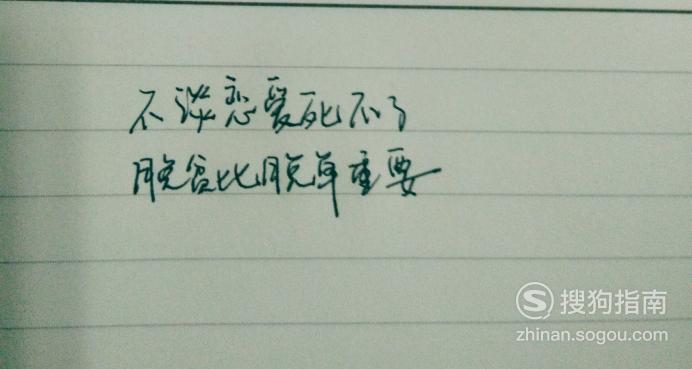 不谈恋爱死不了
脱贫比脱单重要
搜狗指南
zhinan.sogou.com